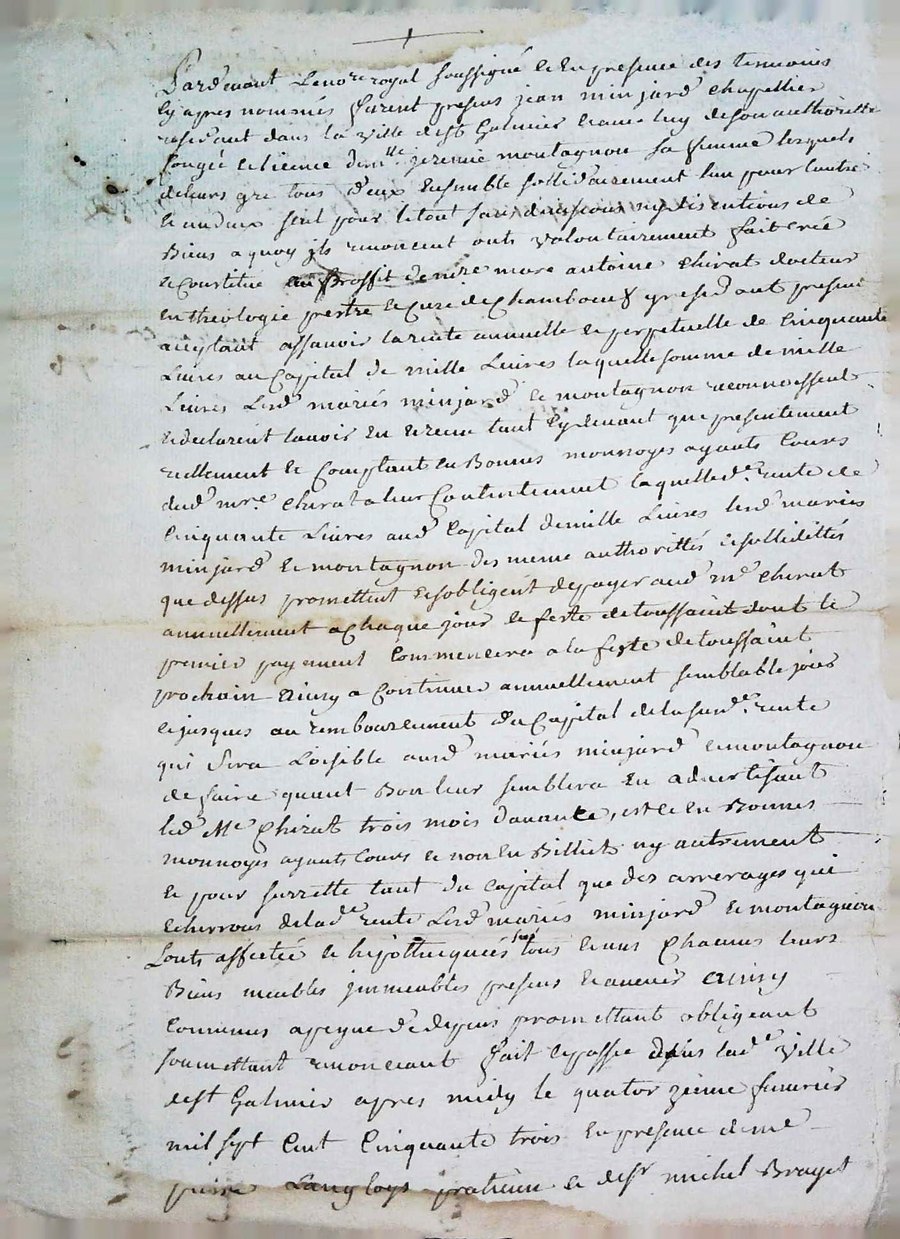 Pardevant Lenore royal soussigné et en presence des temoins
cy apres nommés furent presens jean minjard chapellier
residant dans la ville de st Galmier et avec luy de son authorité
congée et licence dmlle jeremie montagnon sa femme lesquels
de leurs gre tous deux ensemble sollidairement lun pour lautre
et un deux seul pour le tout sans divission ny discutions de
Biens a quoy jls renoncent onts volontairement fait créé
et constitué au proffit de mre marc antoine chirat docteur
en theologie pretre et curé de Chambœuf y residant present
acceptant assavoir la rente annuelle et perpetuelle de Cinquante
Livres au Capital de mille Livres laquelle somme de mille
Livres Lesd mariés minjard et montagnon reconnoissent
et declarent lavoir eu et receu tant cy devant que presentement
reellement et comptant en Bonnes monnoyes ayants Cours
dud mre. Chirat a leur Contentement laquelle de. rente de
Cinquante Livres aud Capital de mille Livres lesd mariés
minjard et montagnon des meme authorittés et sollidittés
que dessus promettent et sobligent de payer aud me Chirat
annuellement a Chaque jour et feste de toussaint dont le
premier payement Commencera a la feste de toussaint
prochain ainsy a Continuer annuellement semblable jour
et jusques au remboursement du Capital de la susde. rente
qui sera Loisible aud mariés minjard et montagnon
de faire quant Bon leur semblera en advertisant
led Me Chirat trois mois davance, et ce en Bonnes
monnoyes ayants Cours et non en Billiets ny autrement
et pour surrette tant du Capital que des arrerages qui
echerrons de lade rente Lesd mariés minjard et montagnon
Lonts affectée et hypothequéés sur tous et uns Chacuns leurs
Biens meubles jmmeubles presens et avenir ainsy
Convenus a peyne de depens promettant obligeant
soumettant renonceant fait et passé dans lade ville
de st Galmier apres midy le quatorzieme fevrier
mil sept Cent Cinquante trois en presence de me
pierre Langloys praticien et de sr michel Brayet